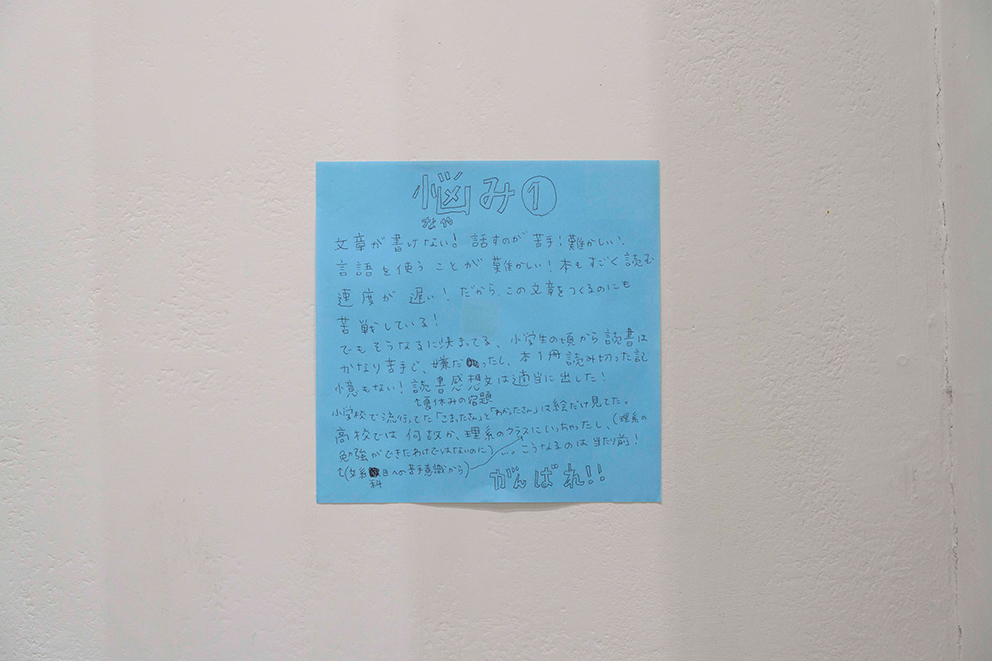 悩み①
なや
文章が書けない！話すのが苦手！難かしい！
言語を使うことが難かしい！本もすごく読む
速度が遅い！だから、この文章をつくるのにも
苦戦している！
でもそうなるに決まってる、小学生の頃から読書は
かなり苦手で、嫌だったし、本1冊読み切った記
憶もない！読書感想文は適当に出した！
夏休みの宿題
小学校で流行ってた「こまったさん」と「わかったさん」は絵だけ見てた。
高校では何故か、理系のクラスにいっちゃったし、(理系の
勉強ができたわけではないのに)…。こうなるのは当たり前！
(文系科目への苦手意識から)
がんばれ!!